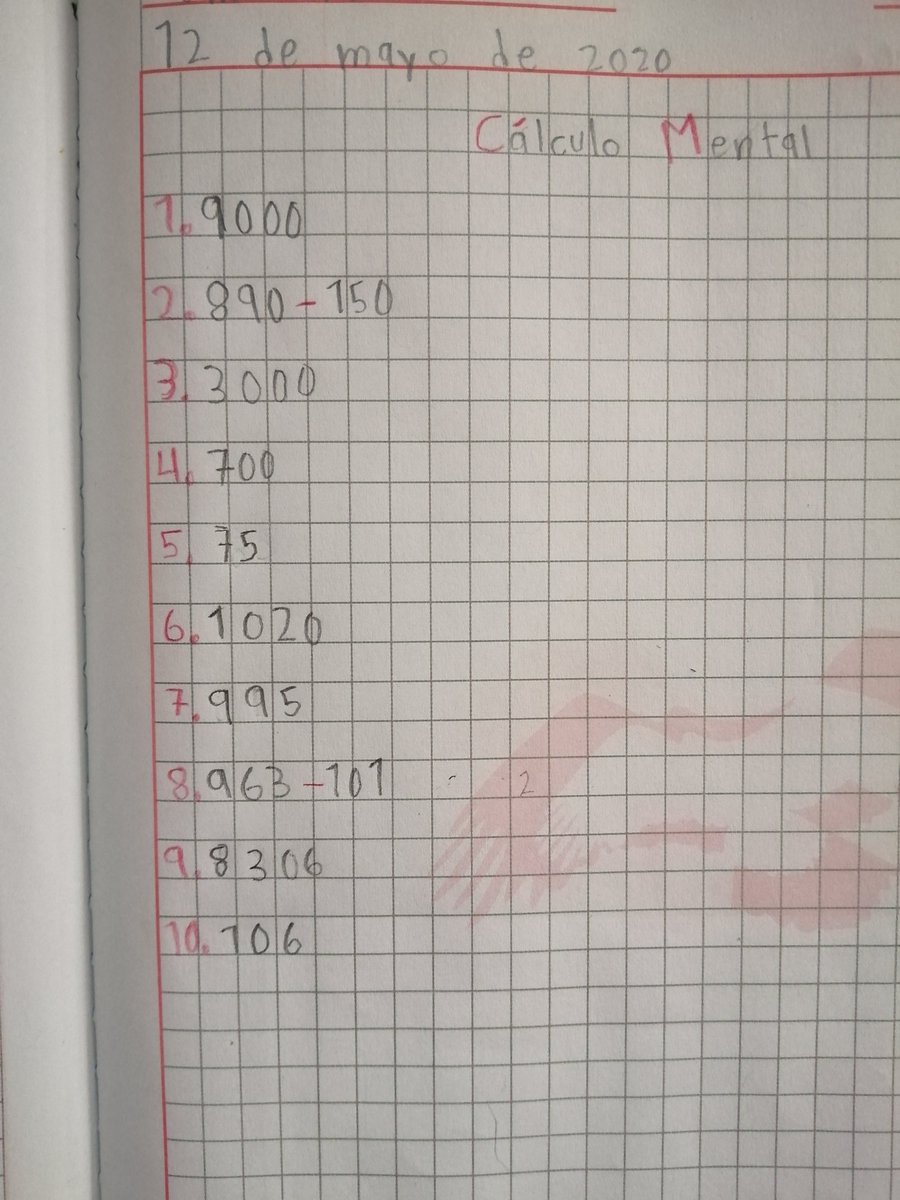 12 de mayo de 2020
Cálculo Mental
1. 9000
2. 890-150
3. 3000
4. 700
5. 75
6. 1020
7. 995
8. 963-101 - 2
9. 8306
10. 106